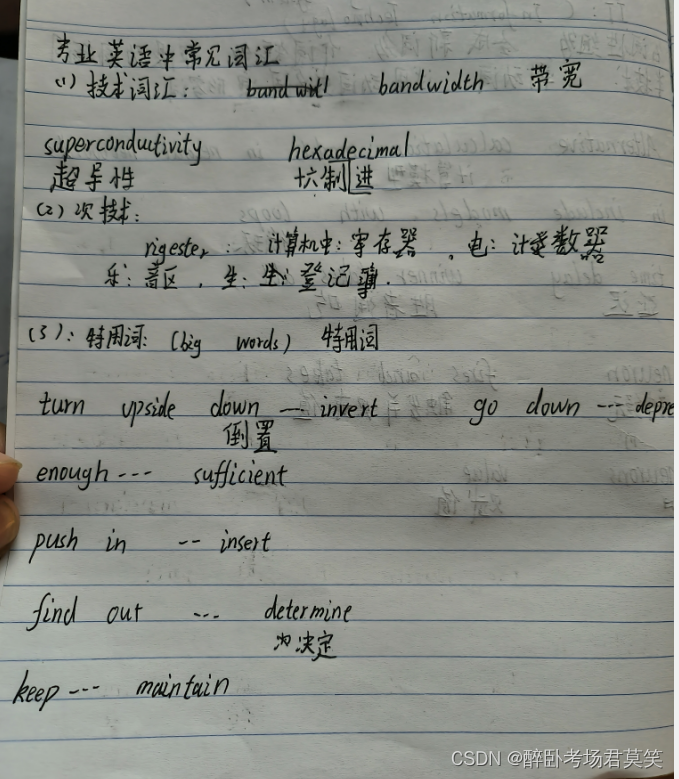 专业英语中常见词汇
(1) 技术词汇: bandwidth 带宽
superconductivity hexadecimal
超导性 十六制进
(2) 次技术:
rigester : 计算机中: 寄存器 。电: 计数器
乐: 音区 , 生: 登记簿.
(3): 特用词: (big words) 特用词
turn upside down --- invert go down --- depre
倒置
enough --- sufficient
push in -- insert
find out --- determine
为决定
keep --- maintain
CSDN @醉卧考场君莫笑